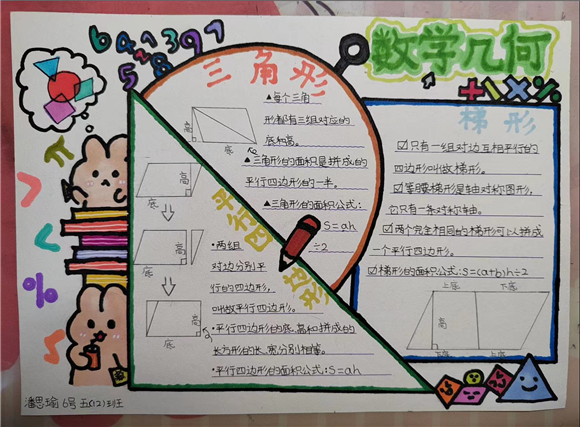 641391
5^8
数学几何
+\×%
π
>
<
%
S
三角形
▲每个三角
形都有三组对应的
底和高。
高
底
▲三角形的面积是拼成的
平行四边形的一半。
▲三角形的面积公式:
S=ah
÷2
平行四边形
高
底
高
底
高
底
•两组
对边分别平
行的四边形,
叫做平行四边形。
•平行四边形的底、高和拼成的
长方形的长、宽分别相等。
•平行四边形的面积公式:S=ah
梯形
☑只有一组对边互相平行的
四边形叫做梯形。
☑等腰梯形是轴对称图形,
它只有一条对称轴。
☑两个完全相同的梯形可以拼成
一个平行四边形。
☑梯形的面积公式:S=(a+b)h÷2
上底 下底
高
下底 上底
潘思瑜 6号 五(12)班